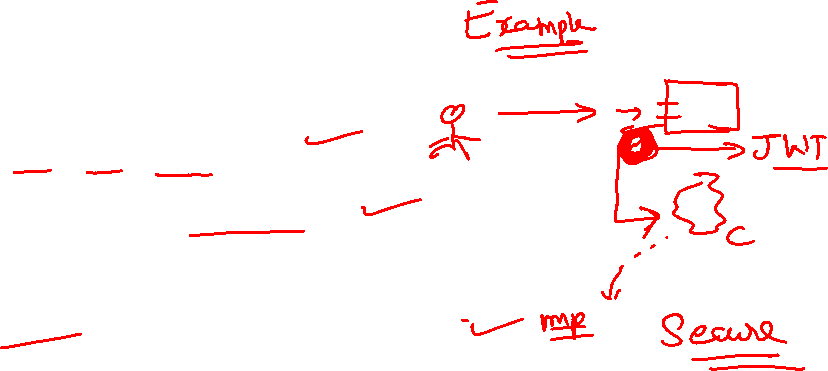 Example
JWT
C
Secure